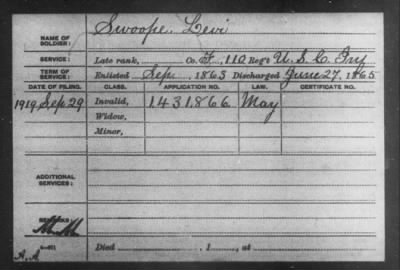 NAME OF SOLDIER: Swoope, Levi
SERVICE: Late rank, Co. F, 110 Reg't U. S. C. Inf
TERM OF SERVICE: Enlisted Sep. 1863 Discharged June 27, 1865
DATE OF FILING. CLASS. APPLICATION NO. LAW. CERTIFICATE NO.
1919 Sep. 29 Invalid, 1431866 May
Widow,
Minor,
ADDITIONAL SERVICES:
REMARKS:
Died , 1 , at